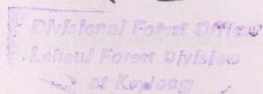 Divisional Forest Officer
Lahaul Forest Division
at Keylong